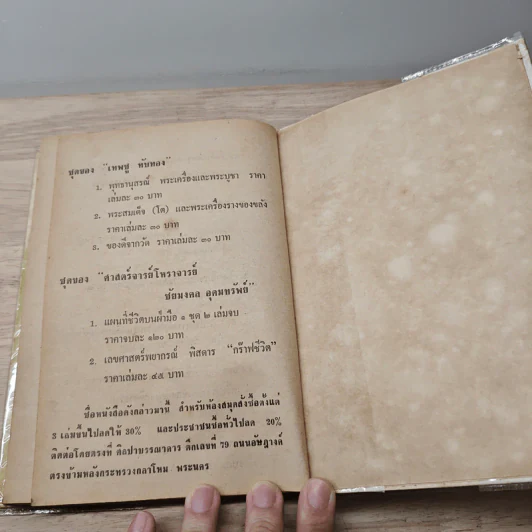 ชุดของ "เทพชู ทับทอง"
1. พุทธานุสรณ์ พระเครื่องและพระบูชา ราคา
เล่มละ ๓๐ บาท
2. พระสมเด็จ (โต) และพระเครื่องรางของขลัง
ราคาเล่มละ ๓๐ บาท
3. ของดีจากวัด ราคาเล่มละ ๓๐ บาท
ชุดของ "ศาสตร์จารย์โหราจารย์
ชัยมงคล อุดมทรัพย์"
1. แผนที่ชีวิตบนฝ่ามือ ๑ ชุด ๒ เล่มจบ
ราคาจบละ ๑๒๐ บาท
2. เลขศาสตร์พยากรณ์ พิสดาร "กร๊าฟชีวิต"
ราคาเล่มละ ๔๕ บาท
ซื้อหนังสือดังกล่าวมานี้ สำหรับห้องสมุดสั่งซื้อตั้งแต่
3 เล่มขึ้นไปลดให้ 30% และประชาชนซื้อทั่วไปลด 20%
ติดต่อโดยตรงที่ ศิลปาบรรณาคาร ตึกเลขที่ 79 ถนนอัษฎางค์
ตรงข้ามหลังกระทรวงกลาโหม พระนคร